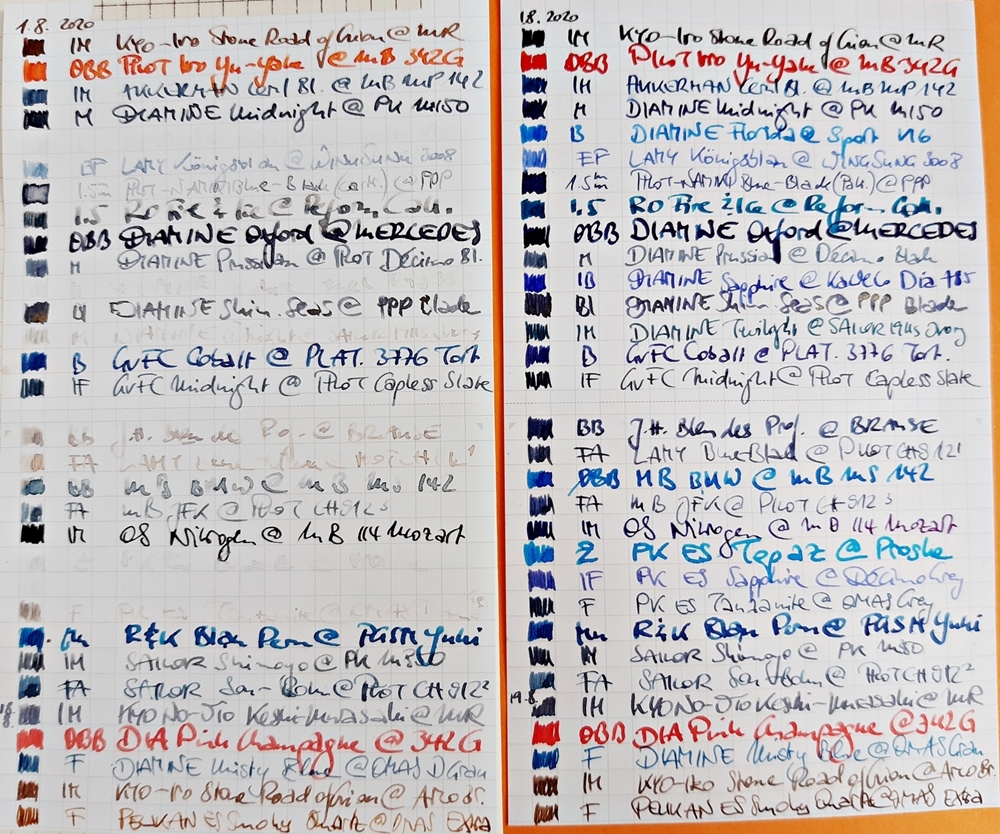 1.8. 2020
IM KYO-Iro Stone Road of Gion @ MR
OBB PILOT Iro Yu-Yake @ MB 342G
IM AKKERMAN Bl. @ MB MP 142
M DIAMINE Midnight @ PK M150
EF LAMY Königsblau @ WINGSUNG 3008
1.5 PILOT-NAMIKI Blue-Black @ PPP
1.5 RO Fire & Ice @ Reform Call.
OBB DIAMINE Oxford @ MERCEDES
M DIAMINE Prussian @ PILOT Décimo Bl.
DIAMINE Shim. Seas @ PPP Blade
B GvFC Cobalt @ PLAT. 3776 Tort.
IF GvFC Midnight @ PILOT Capless Slate
BB J.H. Blau des @ BRAUSE
FA LAMY
BB MB BMW @ MB 142
FA MB JFK @ PILOT CH912³
IM OS Nitrogen @ MB 114 Mozart
F
Mu R&K Blau Perm @ PLAISIR Yuki
IM SAILOR Shimoyo @ PK
FA SAILOR Sou-Boku @ PILOT CH912²
IM KYO NO-Iro Keshi-Murasaki @ MR
OBB DIA Pink Champagne @ 342G
F DIAMINE Misty Blue @ OMAS
IM KYO-Iro Stone Road of Gion @ Arco Br.
F PELIKAN ES Smoky Quartz @ OMAS Extra
1.8. 2020
IM KYO-Iro Stone Road of Gion @ MR
OBB PILOT Iro Yu-Yake @ MB 342G
IM AKKERMAN Bl. @ MB MP 142
M DIAMINE Midnight @ PK M150
B DIAMINE Florida @ Sport V16
EF LAMY Königsblau @ WINGSUNG 3008
1.5 PILOT-NAMIKI Blue-Black @ PPP
1.5 RO Fire & Ice @ Reform Call.
OBB DIAMINE Oxford @ MERCEDES
M DIAMINE Prussian @ Décimo Black
IB DIAMINE Sapphire @ KaWeCo Dia
Bl DIAMINE Shim. Seas @ PPP Blade
IM DIAMINE Twilight @ SAILOR
B GvFC Cobalt @ PLAT. 3776 Tort.
IF GvFC Midnight @ PILOT Capless Slate
BB J.H. Blau des @ BRAUSE
FA LAMY Blue-Black @ PILOT CH912¹
OBB MB BMW @ MB 142
FA MB JFK @ PILOT CH912³
IM OS Nitrogen @ MB 114 Mozart
2 PK ES Topaz @ Proske
IF PK ES Sapphire @ Décimo Grey
F PK ES Tanzanite @ OMAS Grey
Mu R&K Blau Perm @ PLAISIR Yuki
M SAILOR Shimoyo @ PK
FA SAILOR Sou-Boku @ PILOT CH912²
19.8 IM KYO NO-Iro Keshi-Murasaki @ MR
OBB DIA Pink Champagne @ 342G
F DIAMINE Misty Blue @ OMAS
IM KYO-Iro Stone Road of Gion @ Arco Br.
F PELIKAN ES Smoky Quartz @ OMAS Extra